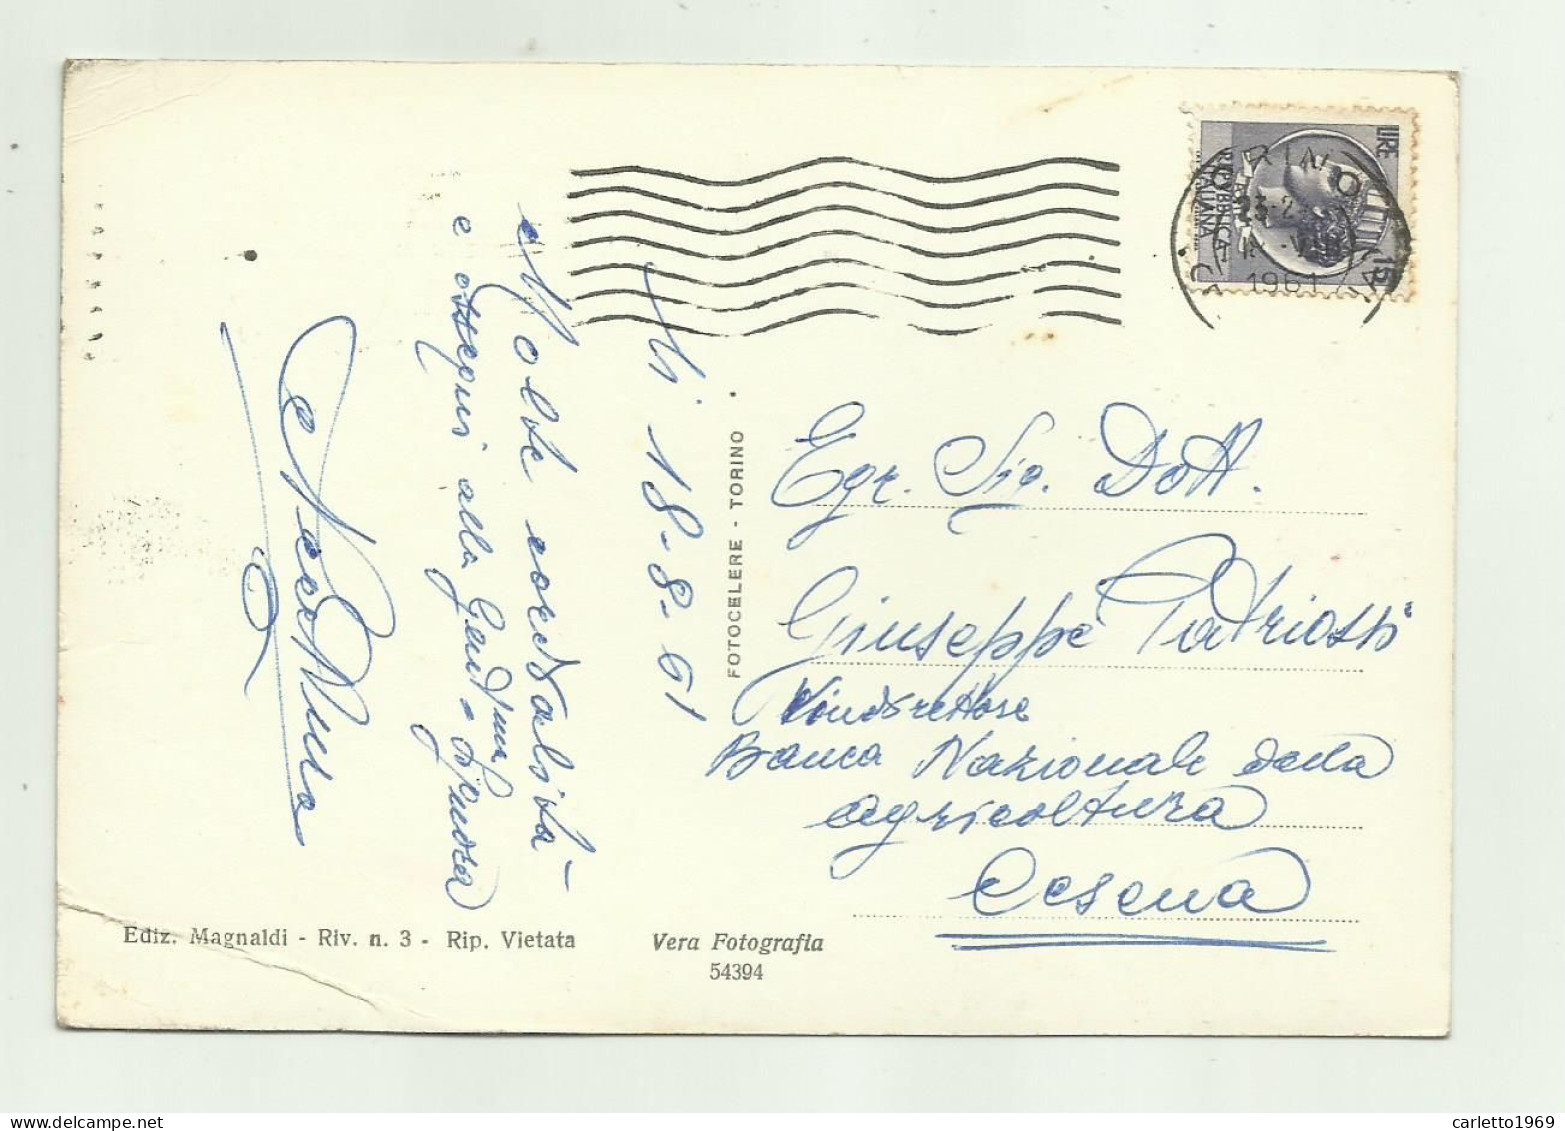 LIRE 15
REPUBBLICA
ITALIANA
TORINO
1961
li 18-8-61
Molte cordialità
e ossequi alla Gent.ma Signora
FOTOCELERE - TORINO
Egr. Sig. Dott.
Giuseppe Patriossi
Vicedirettore
Banca Nazionale della
Agricoltura
Cesena
Ediz. Magnaldi - Riv. n. 3 - Rip. Vietata
Vera Fotografia
54394
carletto1969